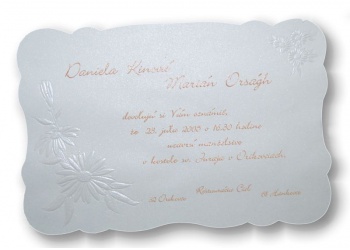 Daniela Hinová
Marián Orságh
dovoľujú si Vám oznámiť,
že 23. júla 2005 o 16.30 hodine
uzavrú manželstvo
v kostole sv. Juraja v Orechovciach.